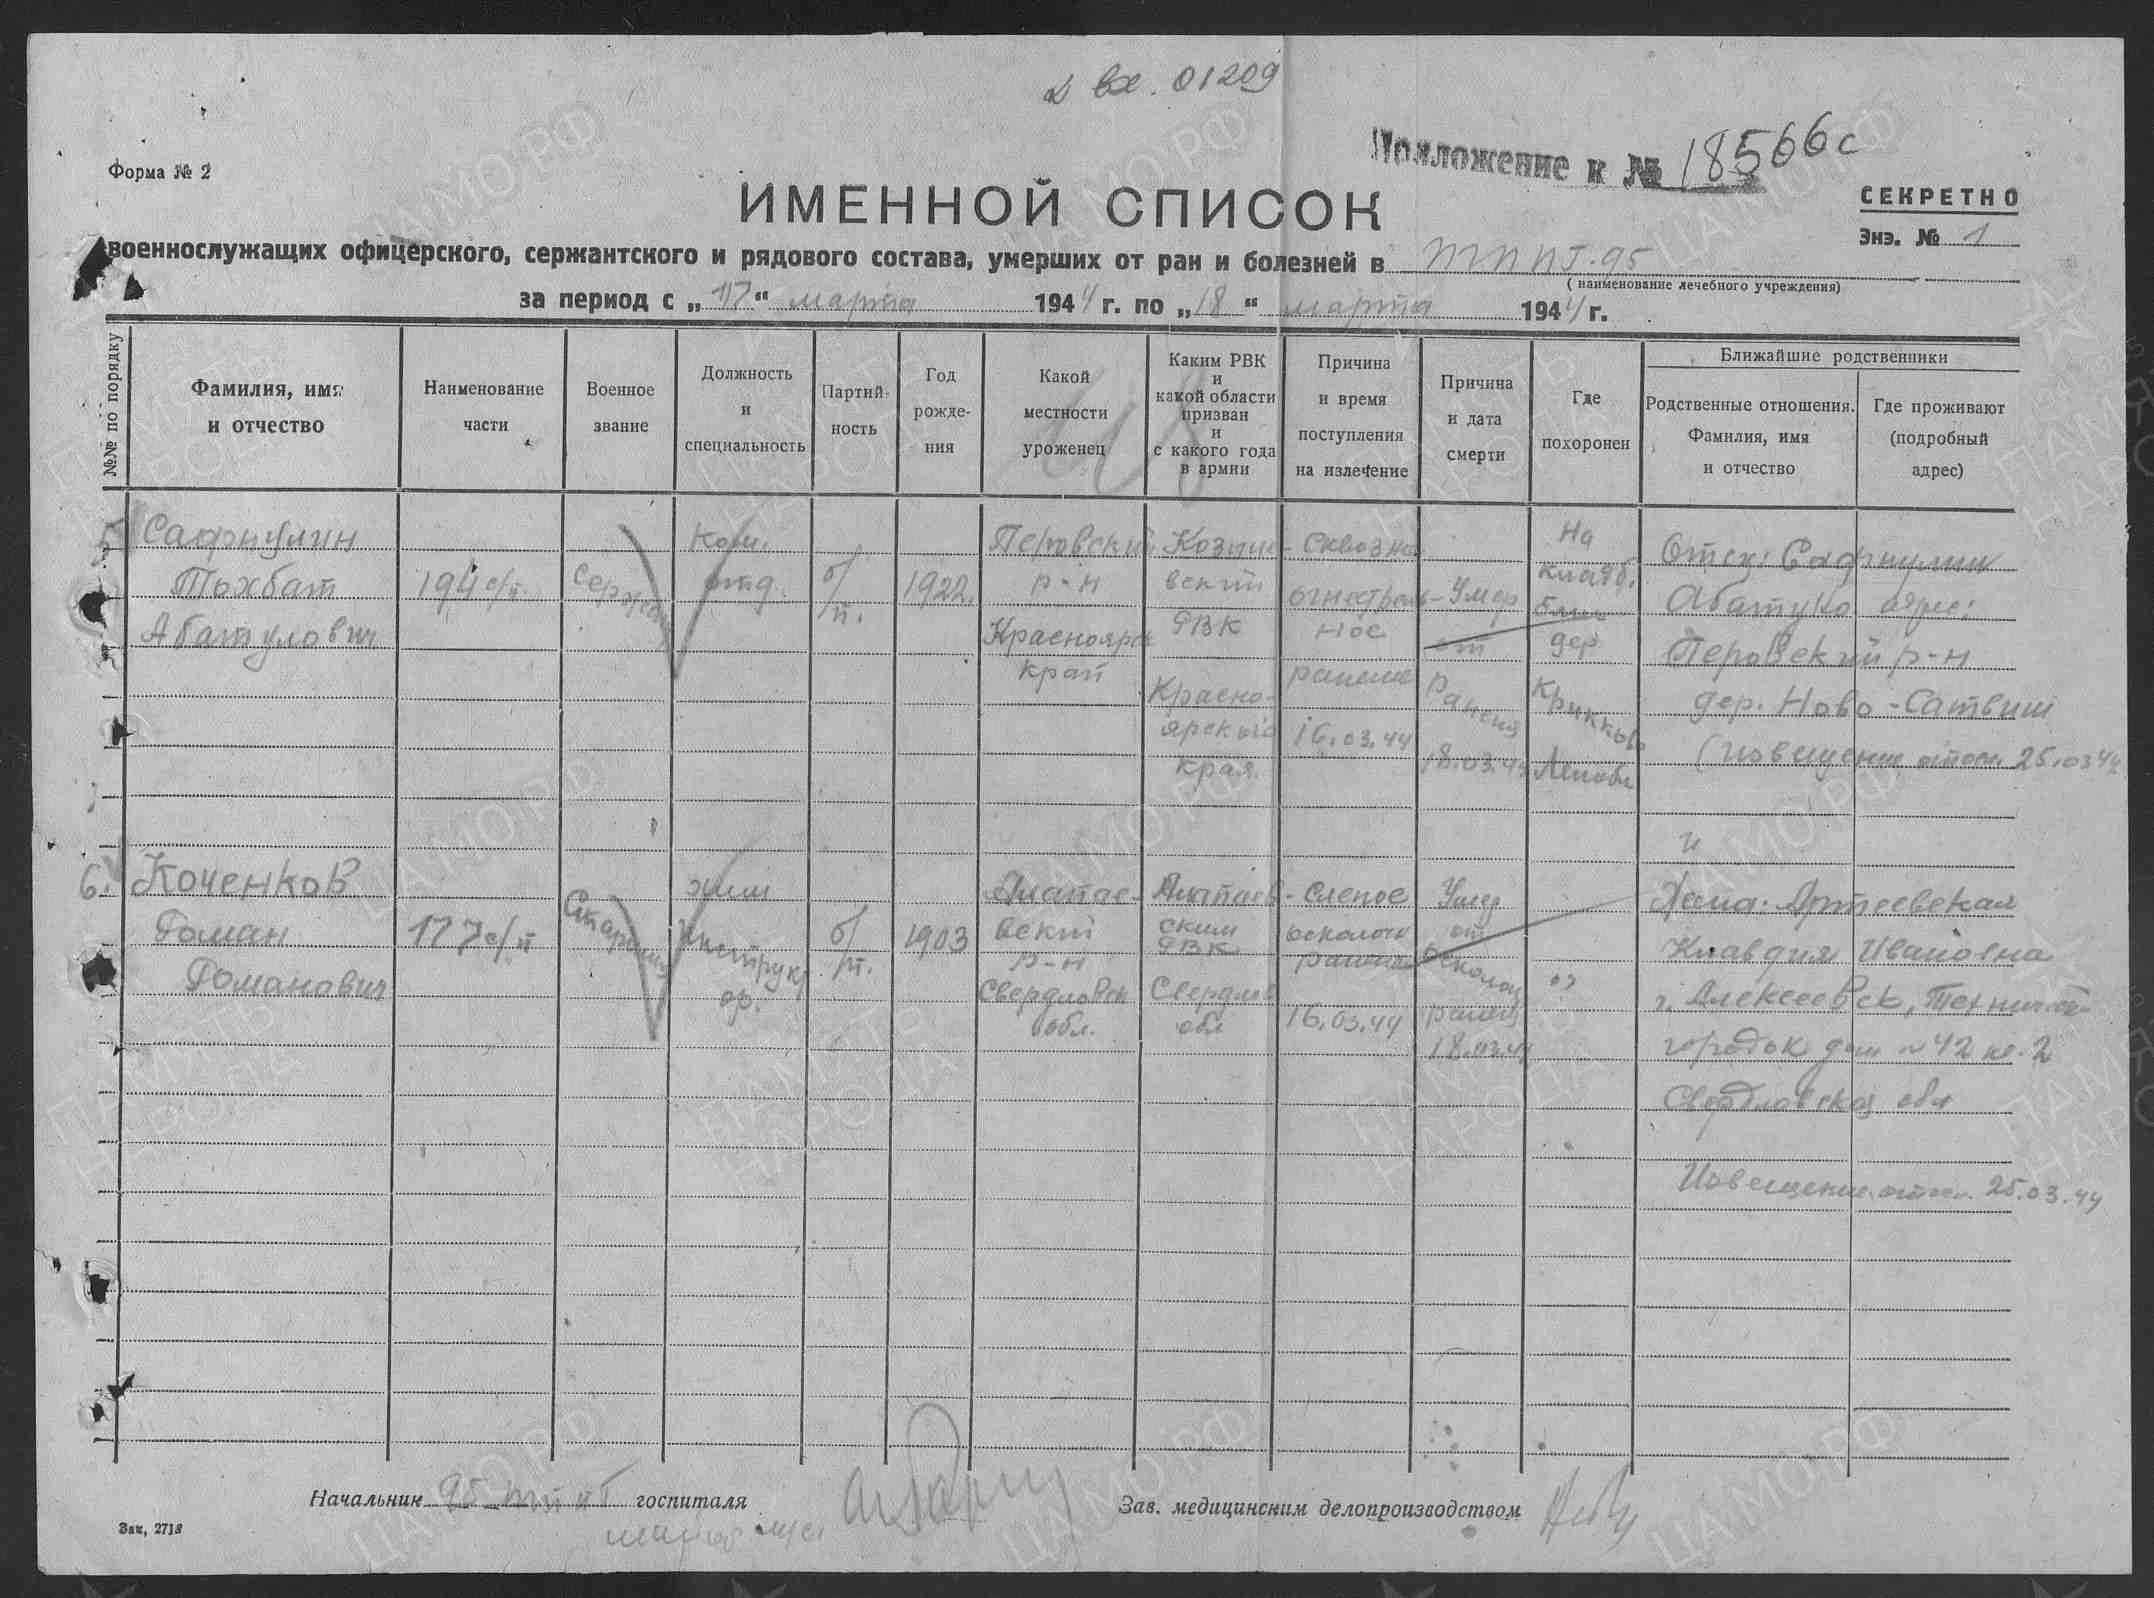 вх. 01209
Приложение к № 18566с
Форма № 2
ИМЕННОЙ СПИСОК
СЕКРЕТНО
Экз. № 1
военнослужащих офицерского, сержантского и рядового состава, умерших от ран и болезней в ТППГ-95
(наименование лечебного учреждения)
за период с „17“ марта 1944 г. по „18“ марта 1944 г.
№№ по порядку
Фамилия, имя и отчество
Наименование части
Военное звание
Должность и специальность
Партийность
Год рождения
Какой местности уроженец
Каким РВК и какой области призван и с какого года в армии
Причина и время поступления на излечение
Причина и дата смерти
Где похоронен
Ближайшие родственники
Родственные отношения. Фамилия, имя и отчество
Где проживают (подробный адрес)
5
Сафиулин
Тохбат
Абатулович
194 с/п.
Сержант
Ком.
отд.
б/
п.
1922.
р-н
Красноярск
край
вский
РВК
Красно-
ярского
края.
Сквозное
огнестрель-
ное
ранение
16.03.44
Умер
от
ранения
18.03.44
На
кладб.
дер.
Отец: Сафиулин
Абатула адрес:
Перовский р-н
дер. Ново-
(Извещение отосл. 25.03.44
6.
Коченков
Роман
Романович
177 с/п
Старшина
хим
инструк
ор.
б/
п.
1903
Алапае-
вский
р-н
Свердловск
обл.
Алапаев-
ским
РВК
Свердлов
обл
Слепое
осколочн
ранение
16.03.44
Умер
от
осколоч
ранен
18.03.44
Жена: Артеевская
Клавдия Ивановна
г. Алексеевск, Техниче-
городок дом № 42 кв. 2
Свердловской обл
Извещение отосл. 25.03.44
Начальник 95 ТППГ госпиталя
майор м/с
Зав. медицинским делопроизводством
Зак. 2718
ЦАМО.РФ
ПАМЯТЬ НАРОДА